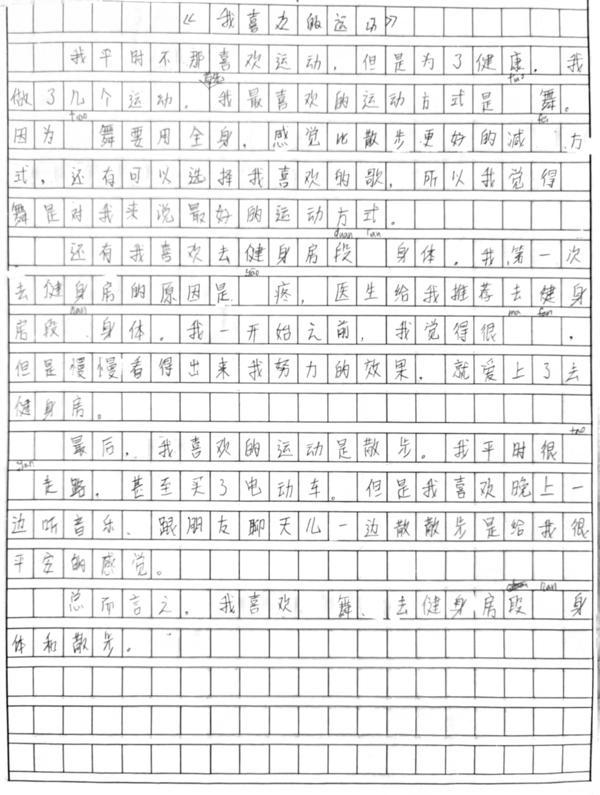 《我喜欢的运动》
我平时不那喜欢运动，但是为了健康，我
做了几个运动。首先我最喜欢的运动方式是tiao舞。
因为tiao舞要用全身，感觉比散步更好的减fei方
式，还有可以选择我喜欢的歌，所以我觉得
舞是对我来说最好的运动方式。
还有我喜欢去健身房段duan lian身体。我第一次
去健身房的原因是yao疼，医生给我推荐去健身
房段lian身体。我一开始之前，我觉得很ma fan，
但是慢慢看得出来我努力的效果，就爱上了去
健身房。
最后，我喜欢的运动是散步。我平时很tao
yan走路，甚至买了电动车。但是我喜欢晚上一
边听音乐、跟朋友聊天儿一边散散步是给我很
平安的感觉。
总而言之，我喜欢舞、去健身房段lian身
体和散步。